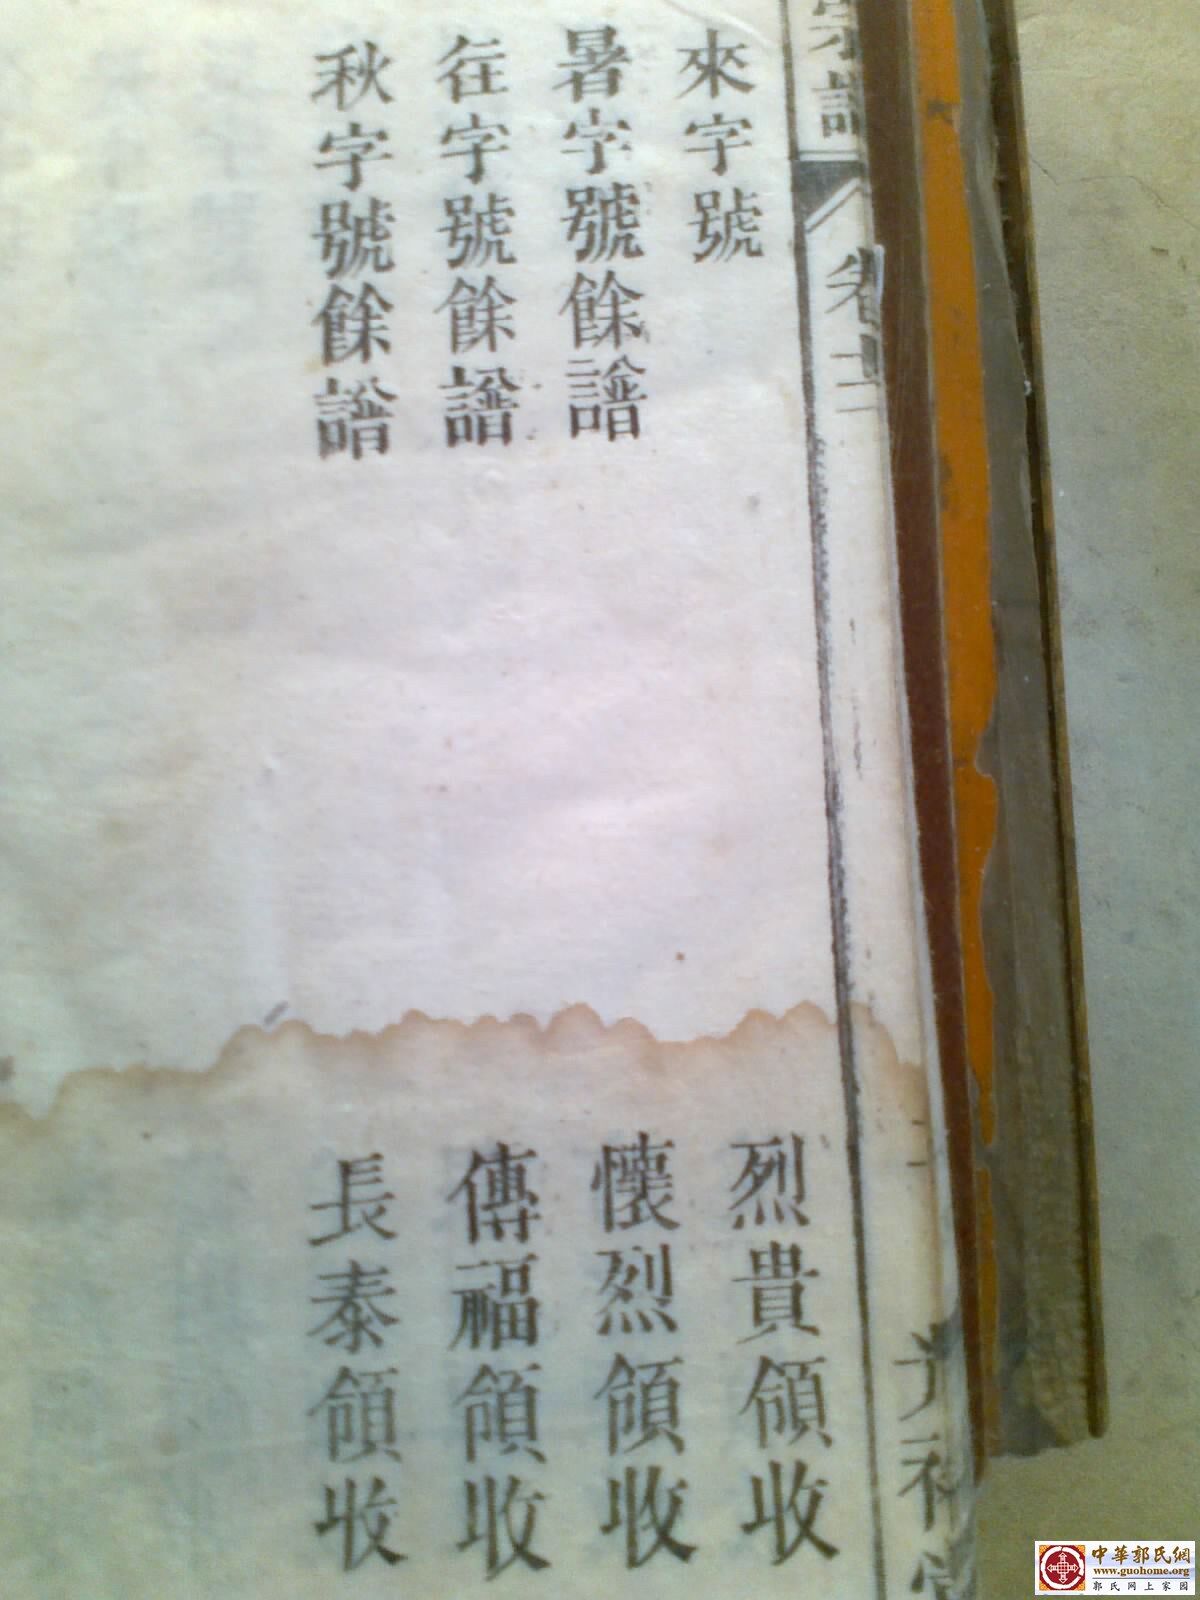 宗譜
卷十二
來字號 烈貴領收
暑字號餘譜 懷烈領收
往字號餘譜 傳福領收
秋字號餘譜 長泰領收
中華郭氏網
www.guohome.org
郭氏网上家园